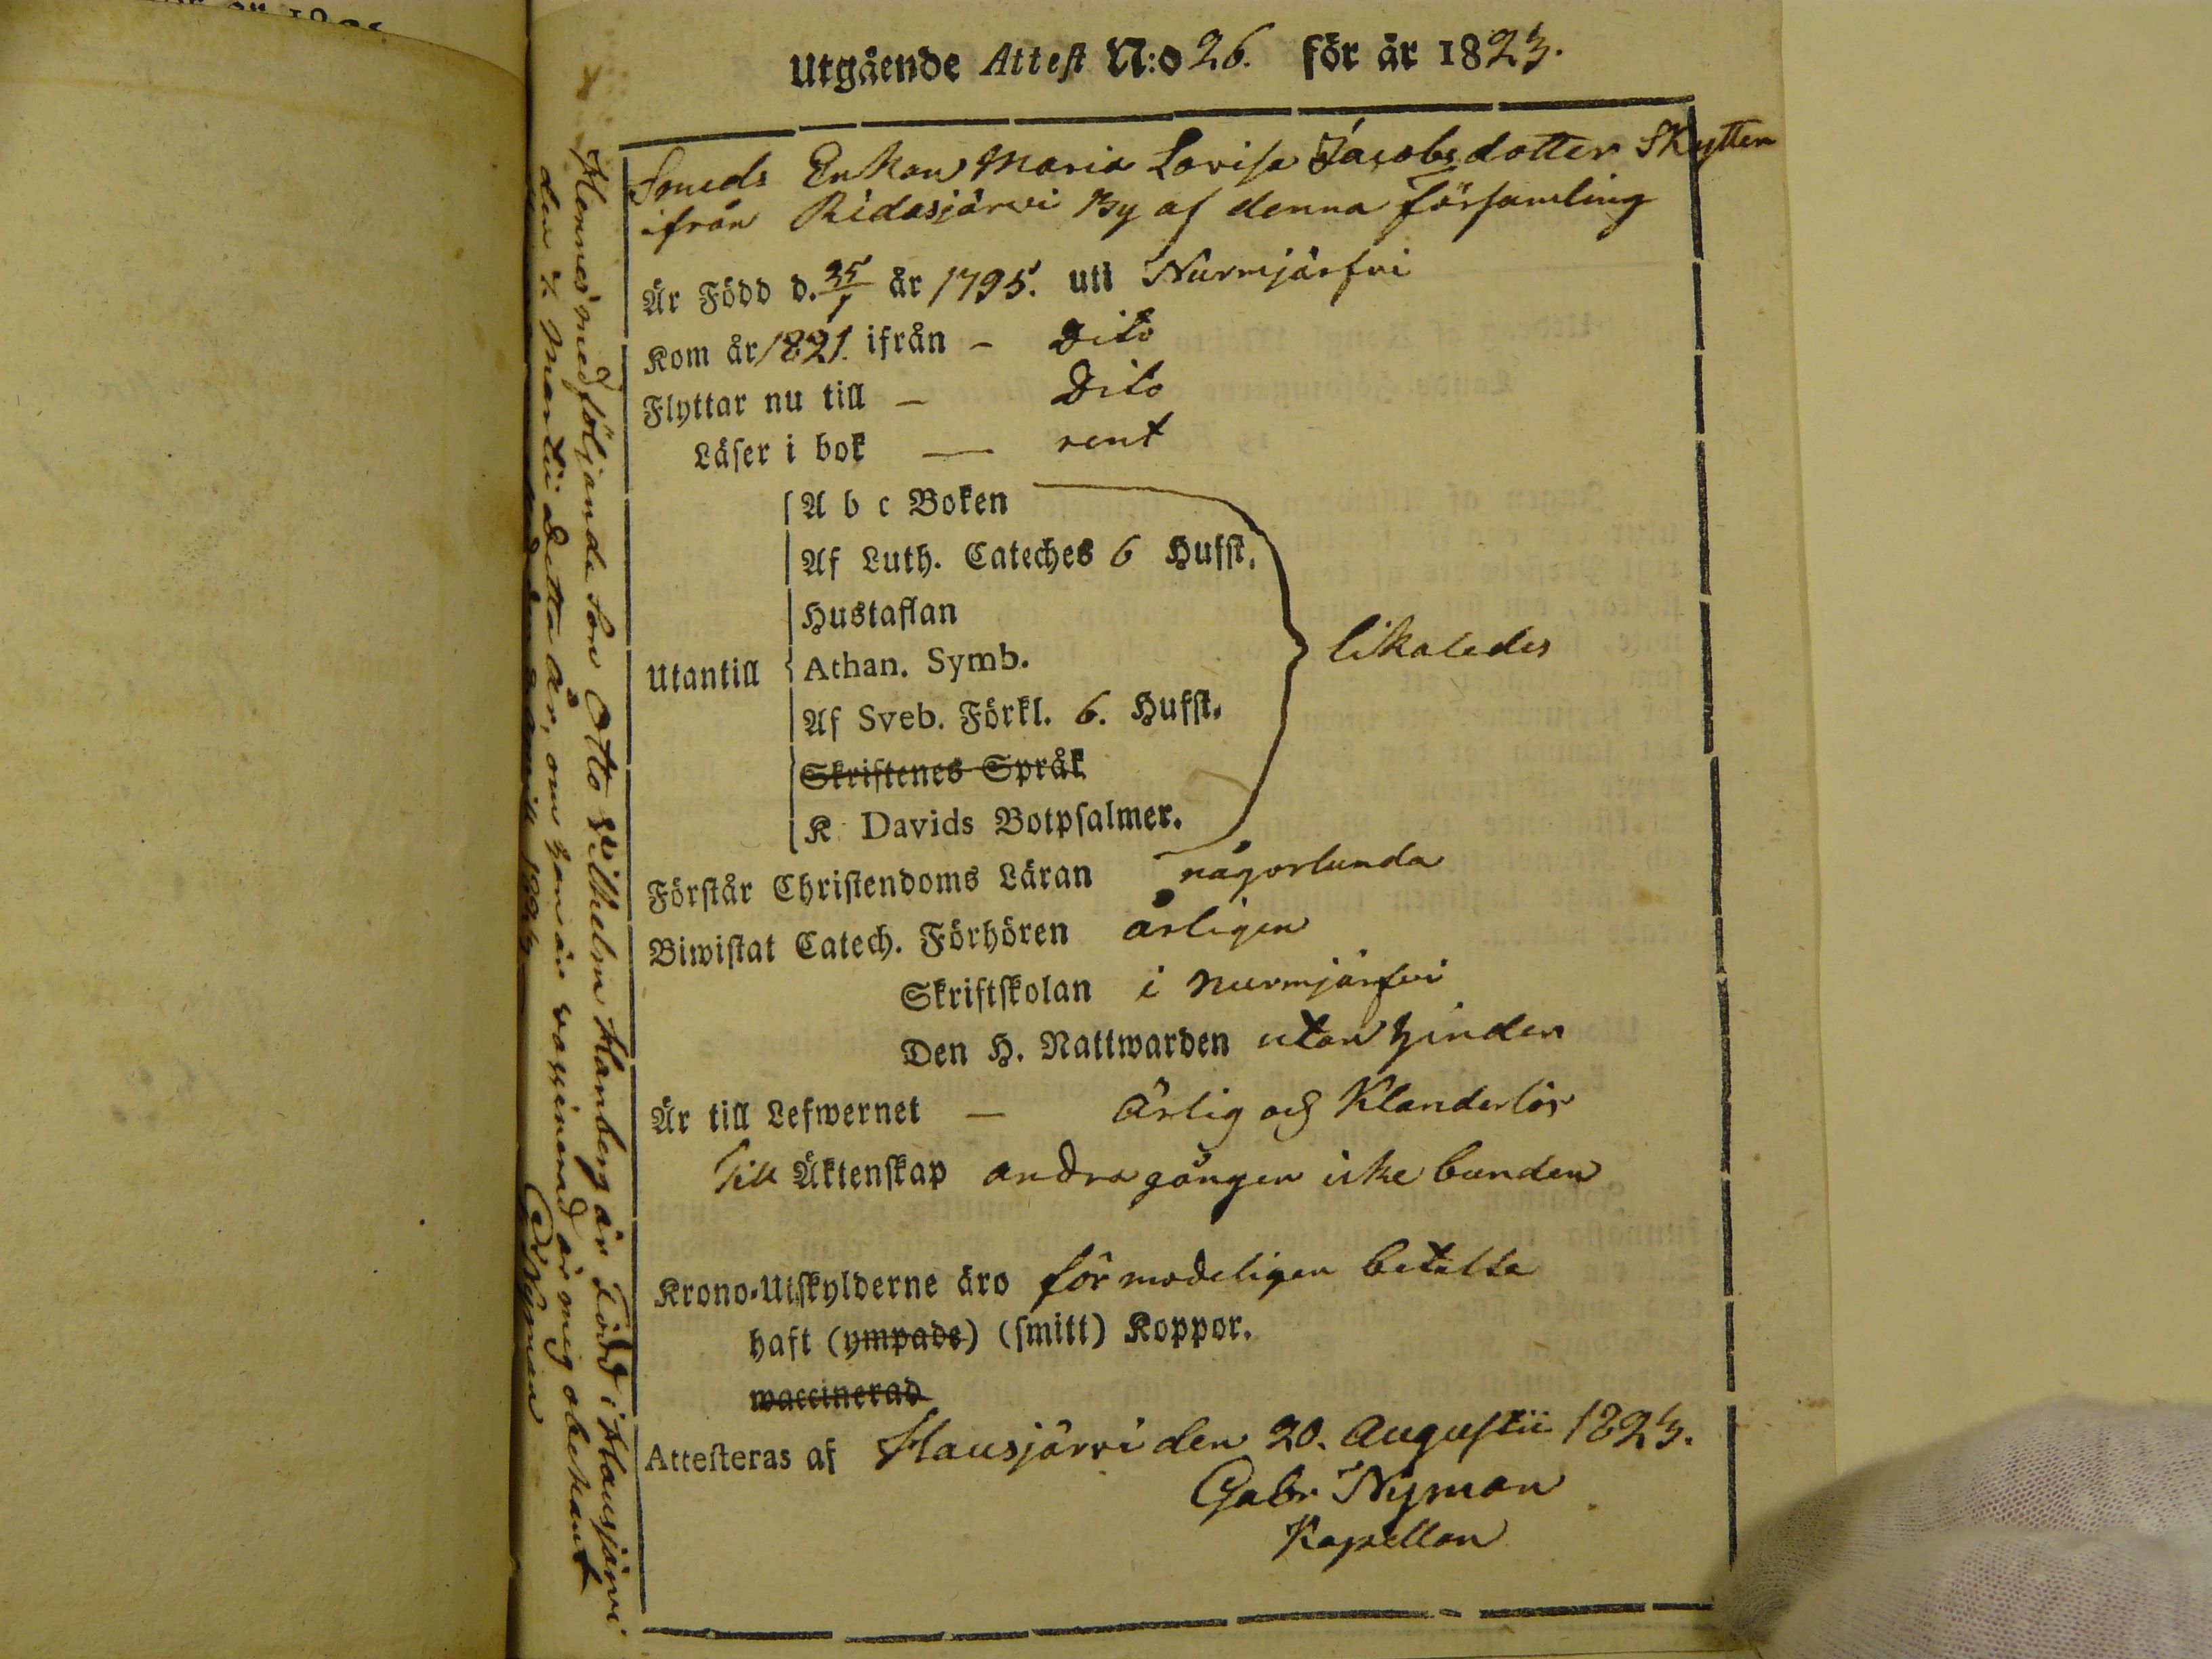 Utgående Attest N:o 26. för år 1823.
Smeds Enkan Maria Lovisa Jacobsdotter Skytten
ifrån Ridasjärvi By af denna Församling
Är Född d. 25/1 år 1795. uti Nurmjärfvi
Kom år 1821. ifrån - Dito
Flyttar nu till - Dito
Läser i bok - rent
A b c Boken
Af Luth. Cateches 6 Hufst.
Hustaflan
Utantill Athan. Symb. likaledes
Af Sveb. Förkl. 6. Hufst.
Skriftenes Språk
K Davids Botpsalmer.
Förstår Christendoms Läran någorlunda
Biwistat Catech. Förhören årligen
Skriftskolan i Nurmjärfvi
Den H. Nattwarden utan hinder
Är till Lefwernet - Ärlig och Klanderlös
Till Äktenskap andra gången icke bunden
Krono-Utskylderne äro förmodeligen betalta
haft (ympade) (smitt) Koppor.
waccinerad
Attesteras af Hausjärvi den 20. Augustii 1823.
Gabr Nyman
Kapellan
Hennes medföljande Son Otto Wilhelm Hamberg är Född i Hausjärvi
den Martii detta år, om han är vaccinerad är mig obekant
Nyman